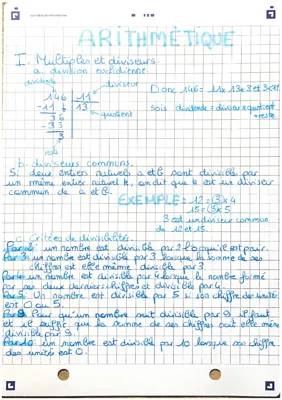 ARITHMÉTIQUE
I. Multiples et diviseurs
a. division euclidienne.
dividende
diviseur
146 | 11
-11 | 13
36
-33
3
quotient
reste
Donc 146 = 11 x 13 + 3 et 3 < 11
sois dividende = diviseur x quotient
+ reste
b. diviseurs communs.
Si deux entiers naturels a et b sont divisible par
un même entier naturel k, on dit que k est un diviseur
commun de a et b.
EXEMPLE: 12 = 3 x 4
15 = 3 x 5
3 est un diviseur commun
de 12 et 15.
c. Critères de divisibilité.
Par 2: un nombre est divisible par 2 lorsqu'il est pair.
Par 3: un nombre est divisible par 3 lorsque la somme de ses
chiffres est elle même divisible par 3
Par 4: un nombre est divisible par 4 lorsque le nombre formé
par ses deux derniers chiffres est divisible par 4.
Par 5: Un nombre est divisible par 5 si son chiffre des unités
est 0 ou 5.
Par 9: Pour qu'un nombre soit divisible par 9, il faut
et il suffit que la somme de ses chiffres soit elle même
divisible par 9.
Par 10: un nombre est divisible par 10 lorsque son chiffre
des unités est 0.